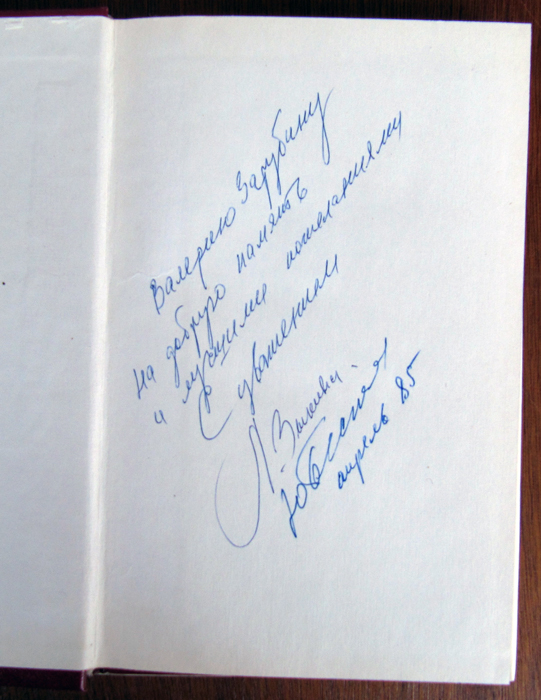 Валерию Зарубину
на добрую память
и лучшими пожеланиями
С уважением
апрель 85